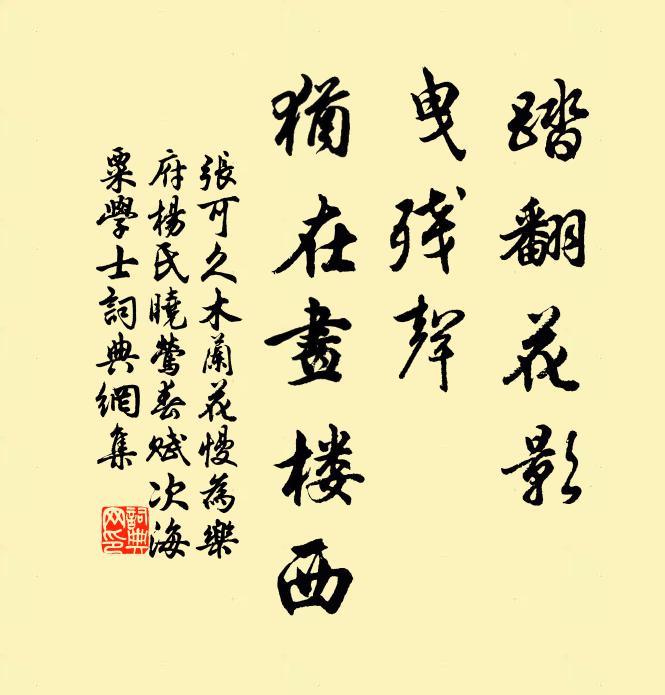 踏翻花影
曳残聲
猶在畫楼西
張可久木蘭花慢為樂
府楊氏曉鶯春賦次海
粟學士詞典網集
詞典
网印